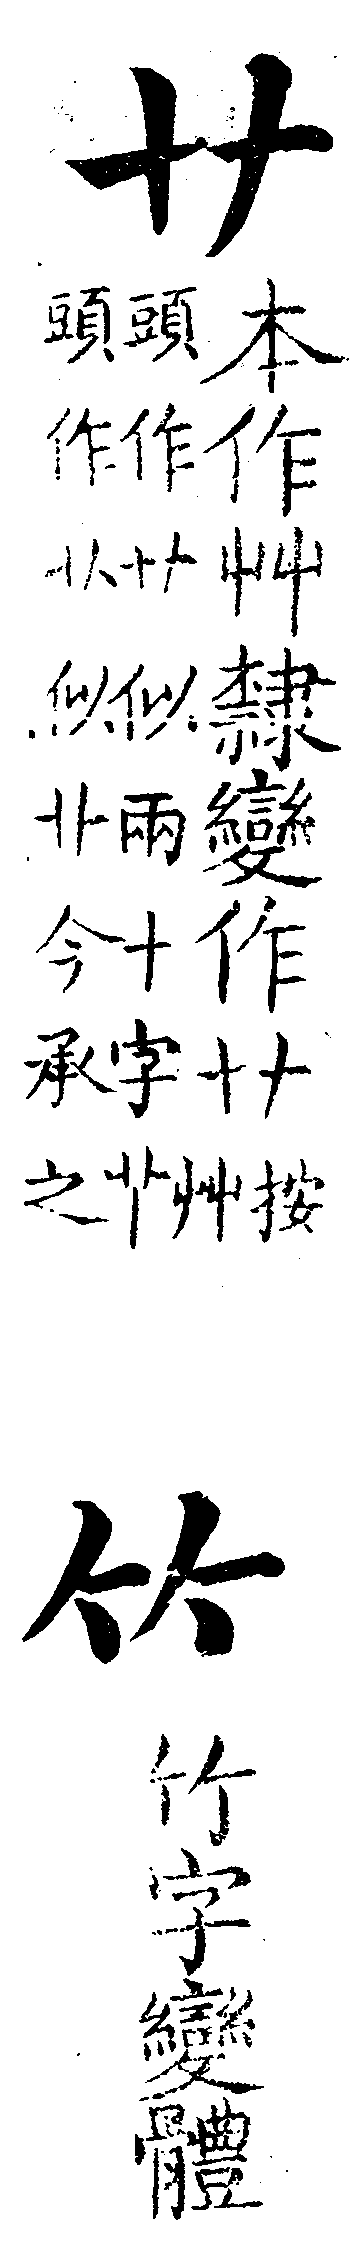 艹
本作艸隸變作艹按艸
頭作艹似兩十字
頭作似今承之
𥫗
竹字變體